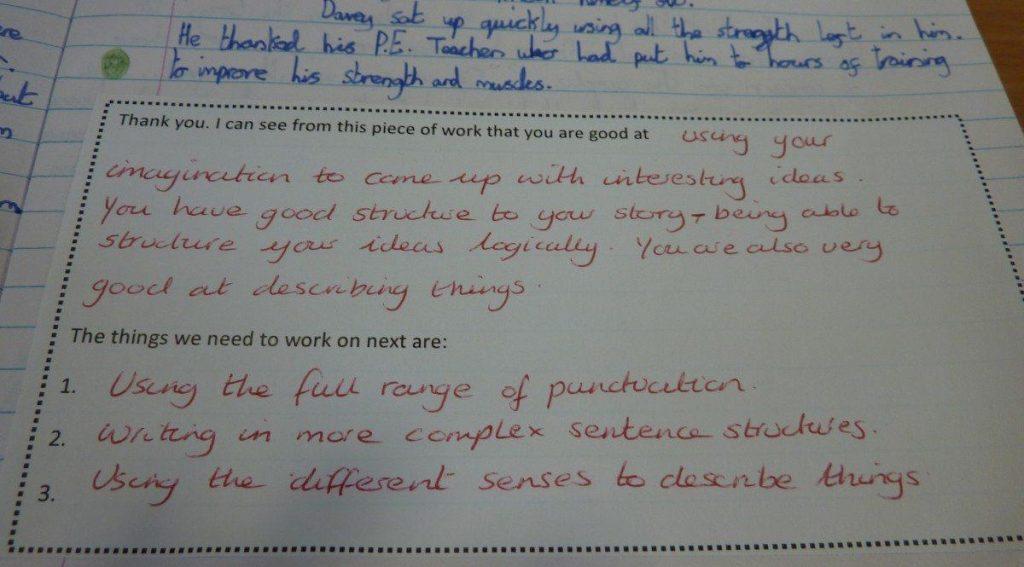 Davey sat up quickly using all the strength left in him.
He thanked his P.E. Teacher who had put him to hours of training
to improve his strength and muscles.
Thank you. I can see from this piece of work that you are good at using your
imagination to come up with interesting ideas.
You have good structure to your story - being able to
structure your ideas logically. You are also very
good at describing things.
The things we need to work on next are:
1. Using the full range of punctuation.
2. Writing in more complex sentence structures.
3. Using the different senses to describe things